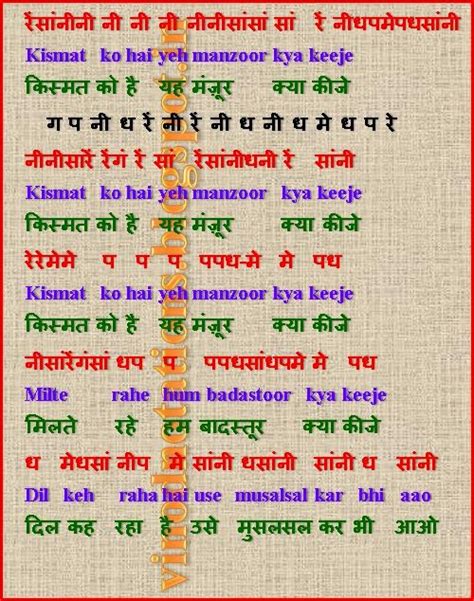 रेंसांनीनी नी नी नी नीनीसांसां सां रें नीधपमेपधसांनी
Kismat ko hai yeh manzoor kya keeje
किस्मत को है यह मंज़ूर क्या कीजे
ग प नी ध रें नी रें नी ध नी ध मे ध प रे
नीनीसारें रेंगं रें सां रेंसांनीधनी रें सांनी
Kismat ko hai yeh manzoor kya keeje
किस्मत को है यह मंज़ूर क्या कीजे
रेरेमेमे प प प पपध-मे मे पध
Kismat ko hai yeh manzoor kya keeje
किस्मत को है यह मंज़ूर क्या कीजे
नीसारेंगंसां धप प पपधसांधपमे मे पध
Milte rahe hum badastoor kya keeje
मिलते रहे हम बादस्तूर क्या कीजे
ध मेधसां नीप मे सांनी धसांनी सांनी ध सांनी
Dil keh raha hai use musalsal kar bhi aao
दिल कह रहा है उसे मुसलसल कर भी आओ